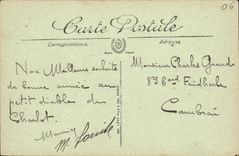 06
Carte Postale
Correspondance
Adresse
Nos Meilleurs souhaits
de bonne année au
petit diable de
Charlot.
Maurice
M. Louise
Monsieur Charles Grand
8 Faidherbe
Cambrai